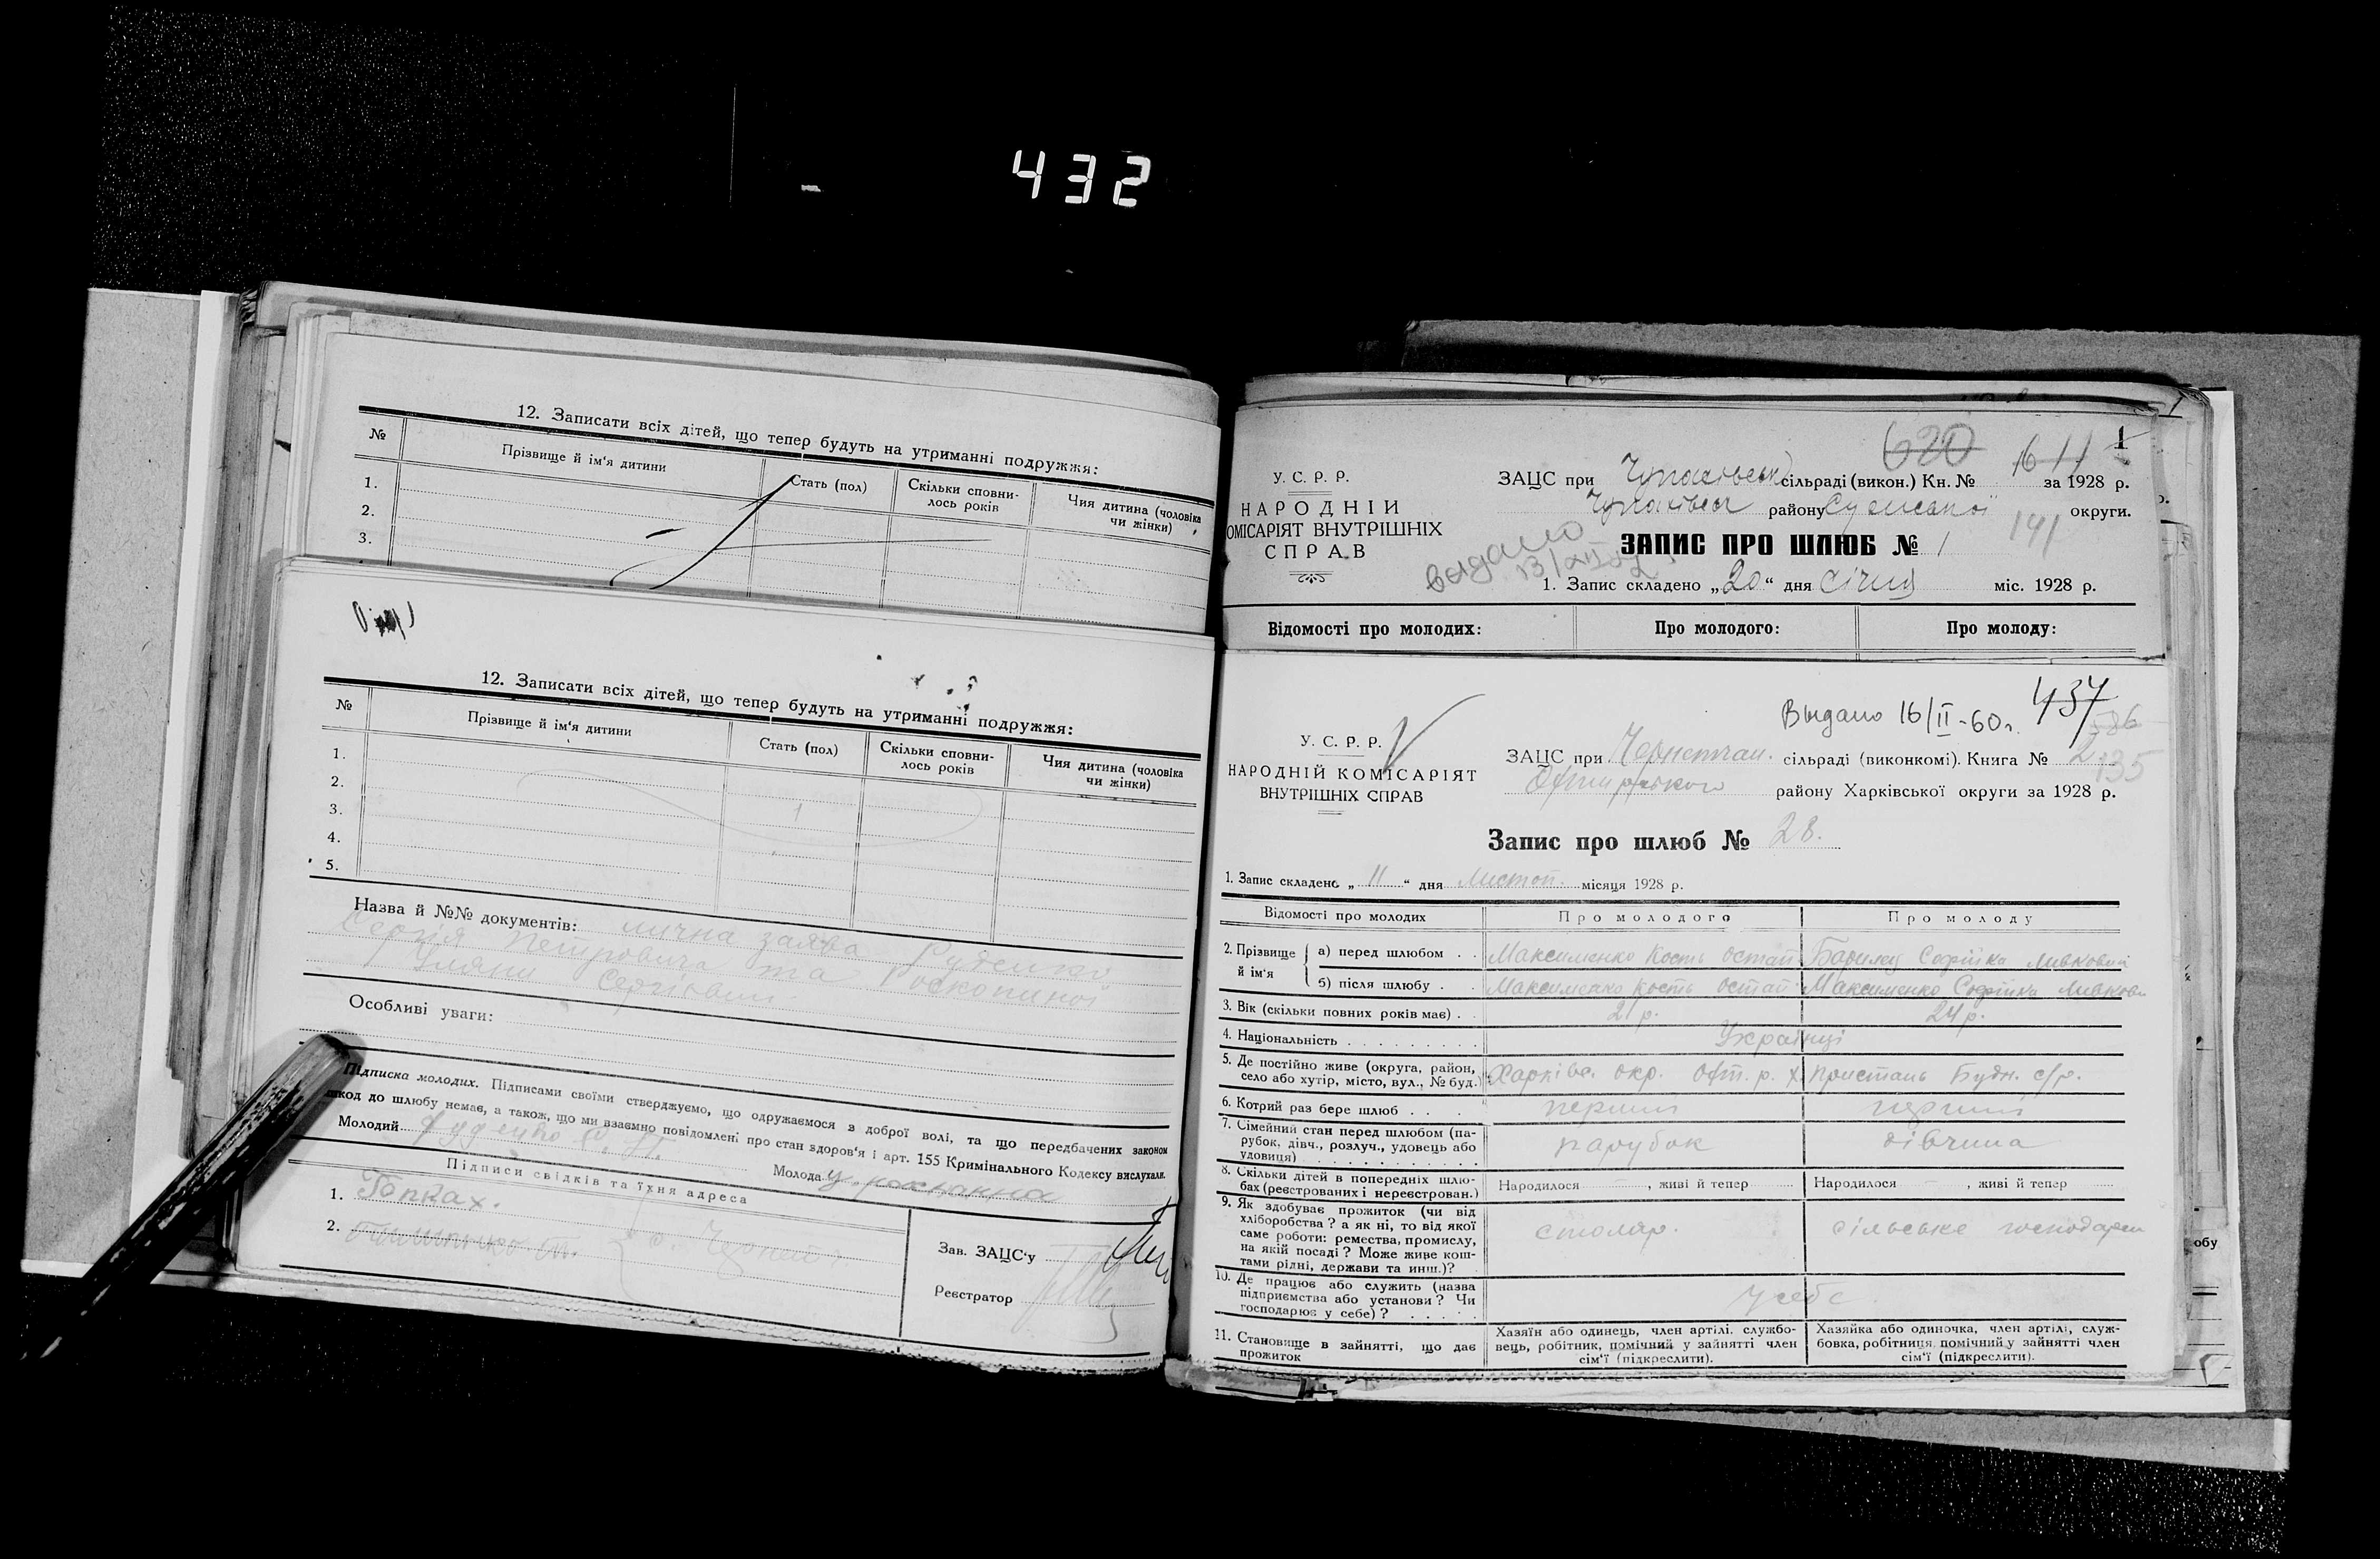 432
12. Записати всіх дітей, що тепер будуть на утриманні подружжя:
№ Прізвище й ім'я дитини Стать (пол) Скільки сповни-
лось років Чия дитина (чоловіка
чи жінки)
1.
2.
3.
12. Записати всіх дітей, що тепер будуть на утриманні подружжя:
№ Прізвище й ім'я дитини Стать (пол) Скільки сповни-
лось років Чия дитина (чоловіка
чи жінки)
1.
2.
3.
4.
5.
Назва й №№ документів: лична заява Руденко
Сергія Петровича та
Уляни Сергіовни
Особливі уваги:
Підписка молодих. Підписами своїми стверджуємо, що одружаємося з доброї волі, та що передбачених законом
шкод до шлюбу немає, а також, що ми взаємно повідомлені про стан здоров'я і арт. 155 Кримінального Кодексу вислухали.
Молодий Руденко С. П. Молода У.
Підписи свідків та їхня адреса
1.
2.
Зав. ЗАЦС'у
Реєстратор
620 16 11 1
У. С. Р. Р.
НАРОДНІЙ
ОМІСАРІЯТ ВНУТРІШНІХ
СПРАВ
ЗАЦС при сільраді (викон.) Кн. № за 1928 р.
району Сумської округи.
141
выдано
ЗАПИС ПРО ШЛЮБ № 1
1. Запис складено „20“ дня Січня міс. 1928 р.
Відомості про молодих: Про молодого: Про молоду:
Выдано 16/II-60г. 437
586
У. С. Р. Р.
НАРОДНІЙ КОМІСАРІЯТ
ВНУТРІШНІХ СПРАВ
ЗАЦС при сільраді (виконкомі). Книга № 2
135
району Харківської округи за 1928 р.
Запис про шлюб № 28.
1. Запис складено „11“ дня Листоп. місяця 1928 р.
Відомості про молодих Про молодого Про молоду
2. Прізвище й ім'я а) перед шлюбом Максименко Кость Остап Софійка Левковна
б) після шлюбу Максименко Кость Остап Максименко Софійка Левковн
3. Вік (скільки повних років має) 21 р. 24 р.
4. Національність Українці
5. Де постійно живе (округа, район,
село або хутір, місто, вул., № буд.) Харківс. окр. Охт. р. х Пристань Будн. с/р.
6. Котрий раз бере шлюб перший перший
7. Сімейний стан перед шлюбом (па-
рубок, дівч., розлуч., удовець або
удовиця) парубок дівчина
8. Скільки дітей в попередніх шлю-
бах (реєстрованих і нереєстрован.) Народилося , живі й тепер Народилося , живі й тепер
9. Як здобуває прожиток (чи від
хліборобства? а як ні, то від якої
саме роботи: ремества, промислу,
на якій посаді? Може живе кош-
тами рідні, держави та инш.)? столяр. сільське господарст
10. Де працює або служить (назва
підприємства або установи? Чи
господарює у себе)? у себе
11. Становище в зайнятті, що дає
прожиток
Хазяїн або одинець, член артілі, службо-
вець, робітник, помічний у зайнятті член
сім'ї (підкреслити).
Хазяйка або одиночка, член артілі, служ-
бовка, робітниця, помічний у зайнятті член
сім'ї (підкреслити).
обу